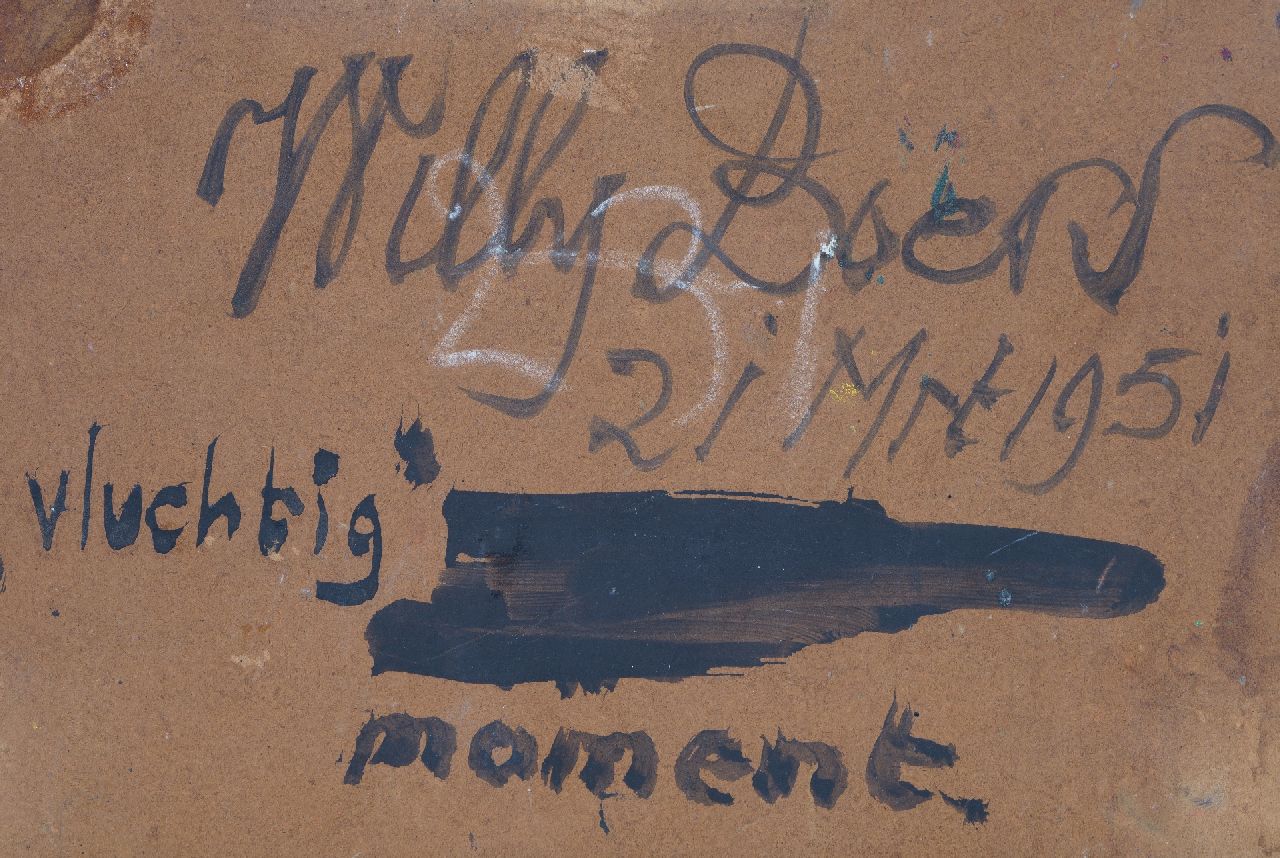 Willy Boers
231
21 Mrt 1951
vluchtig
moment